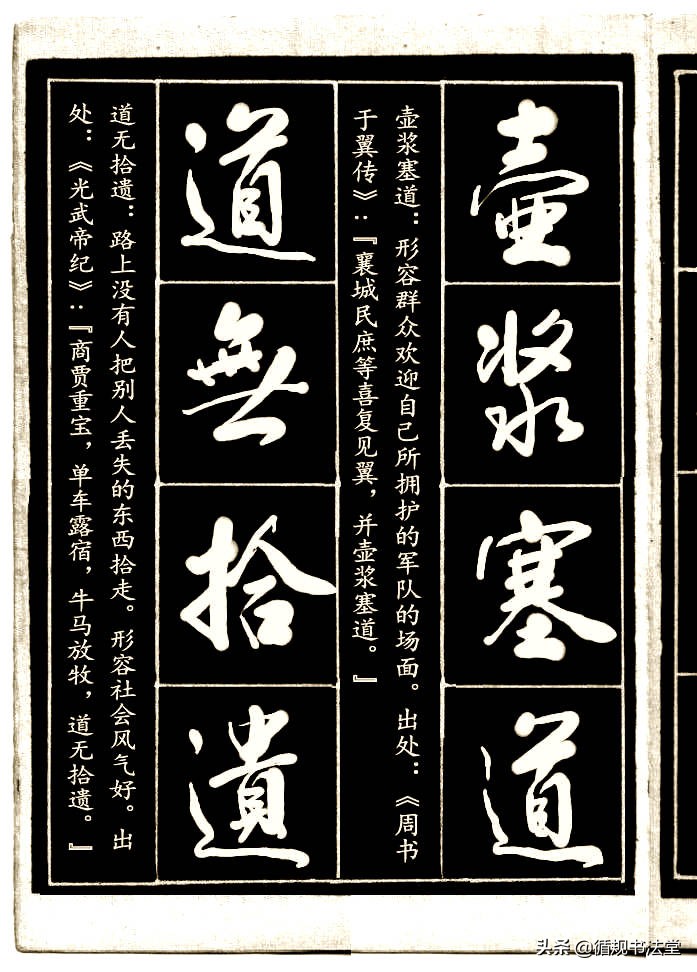 壶浆塞道
壶浆塞道：形容群众欢迎自己所拥护的军队的场面。出处：《周书
于翼传》：『襄城民庶等喜复见翼，并壶浆塞道。』
道無拾遺
道无拾遗：路上没有人把别人丢失的东西拾走。形容社会风气好。出
处：《光武帝纪》：『商贾重宝，单车露宿，牛马放牧，道无拾遗。』
头条 @循规书法堂